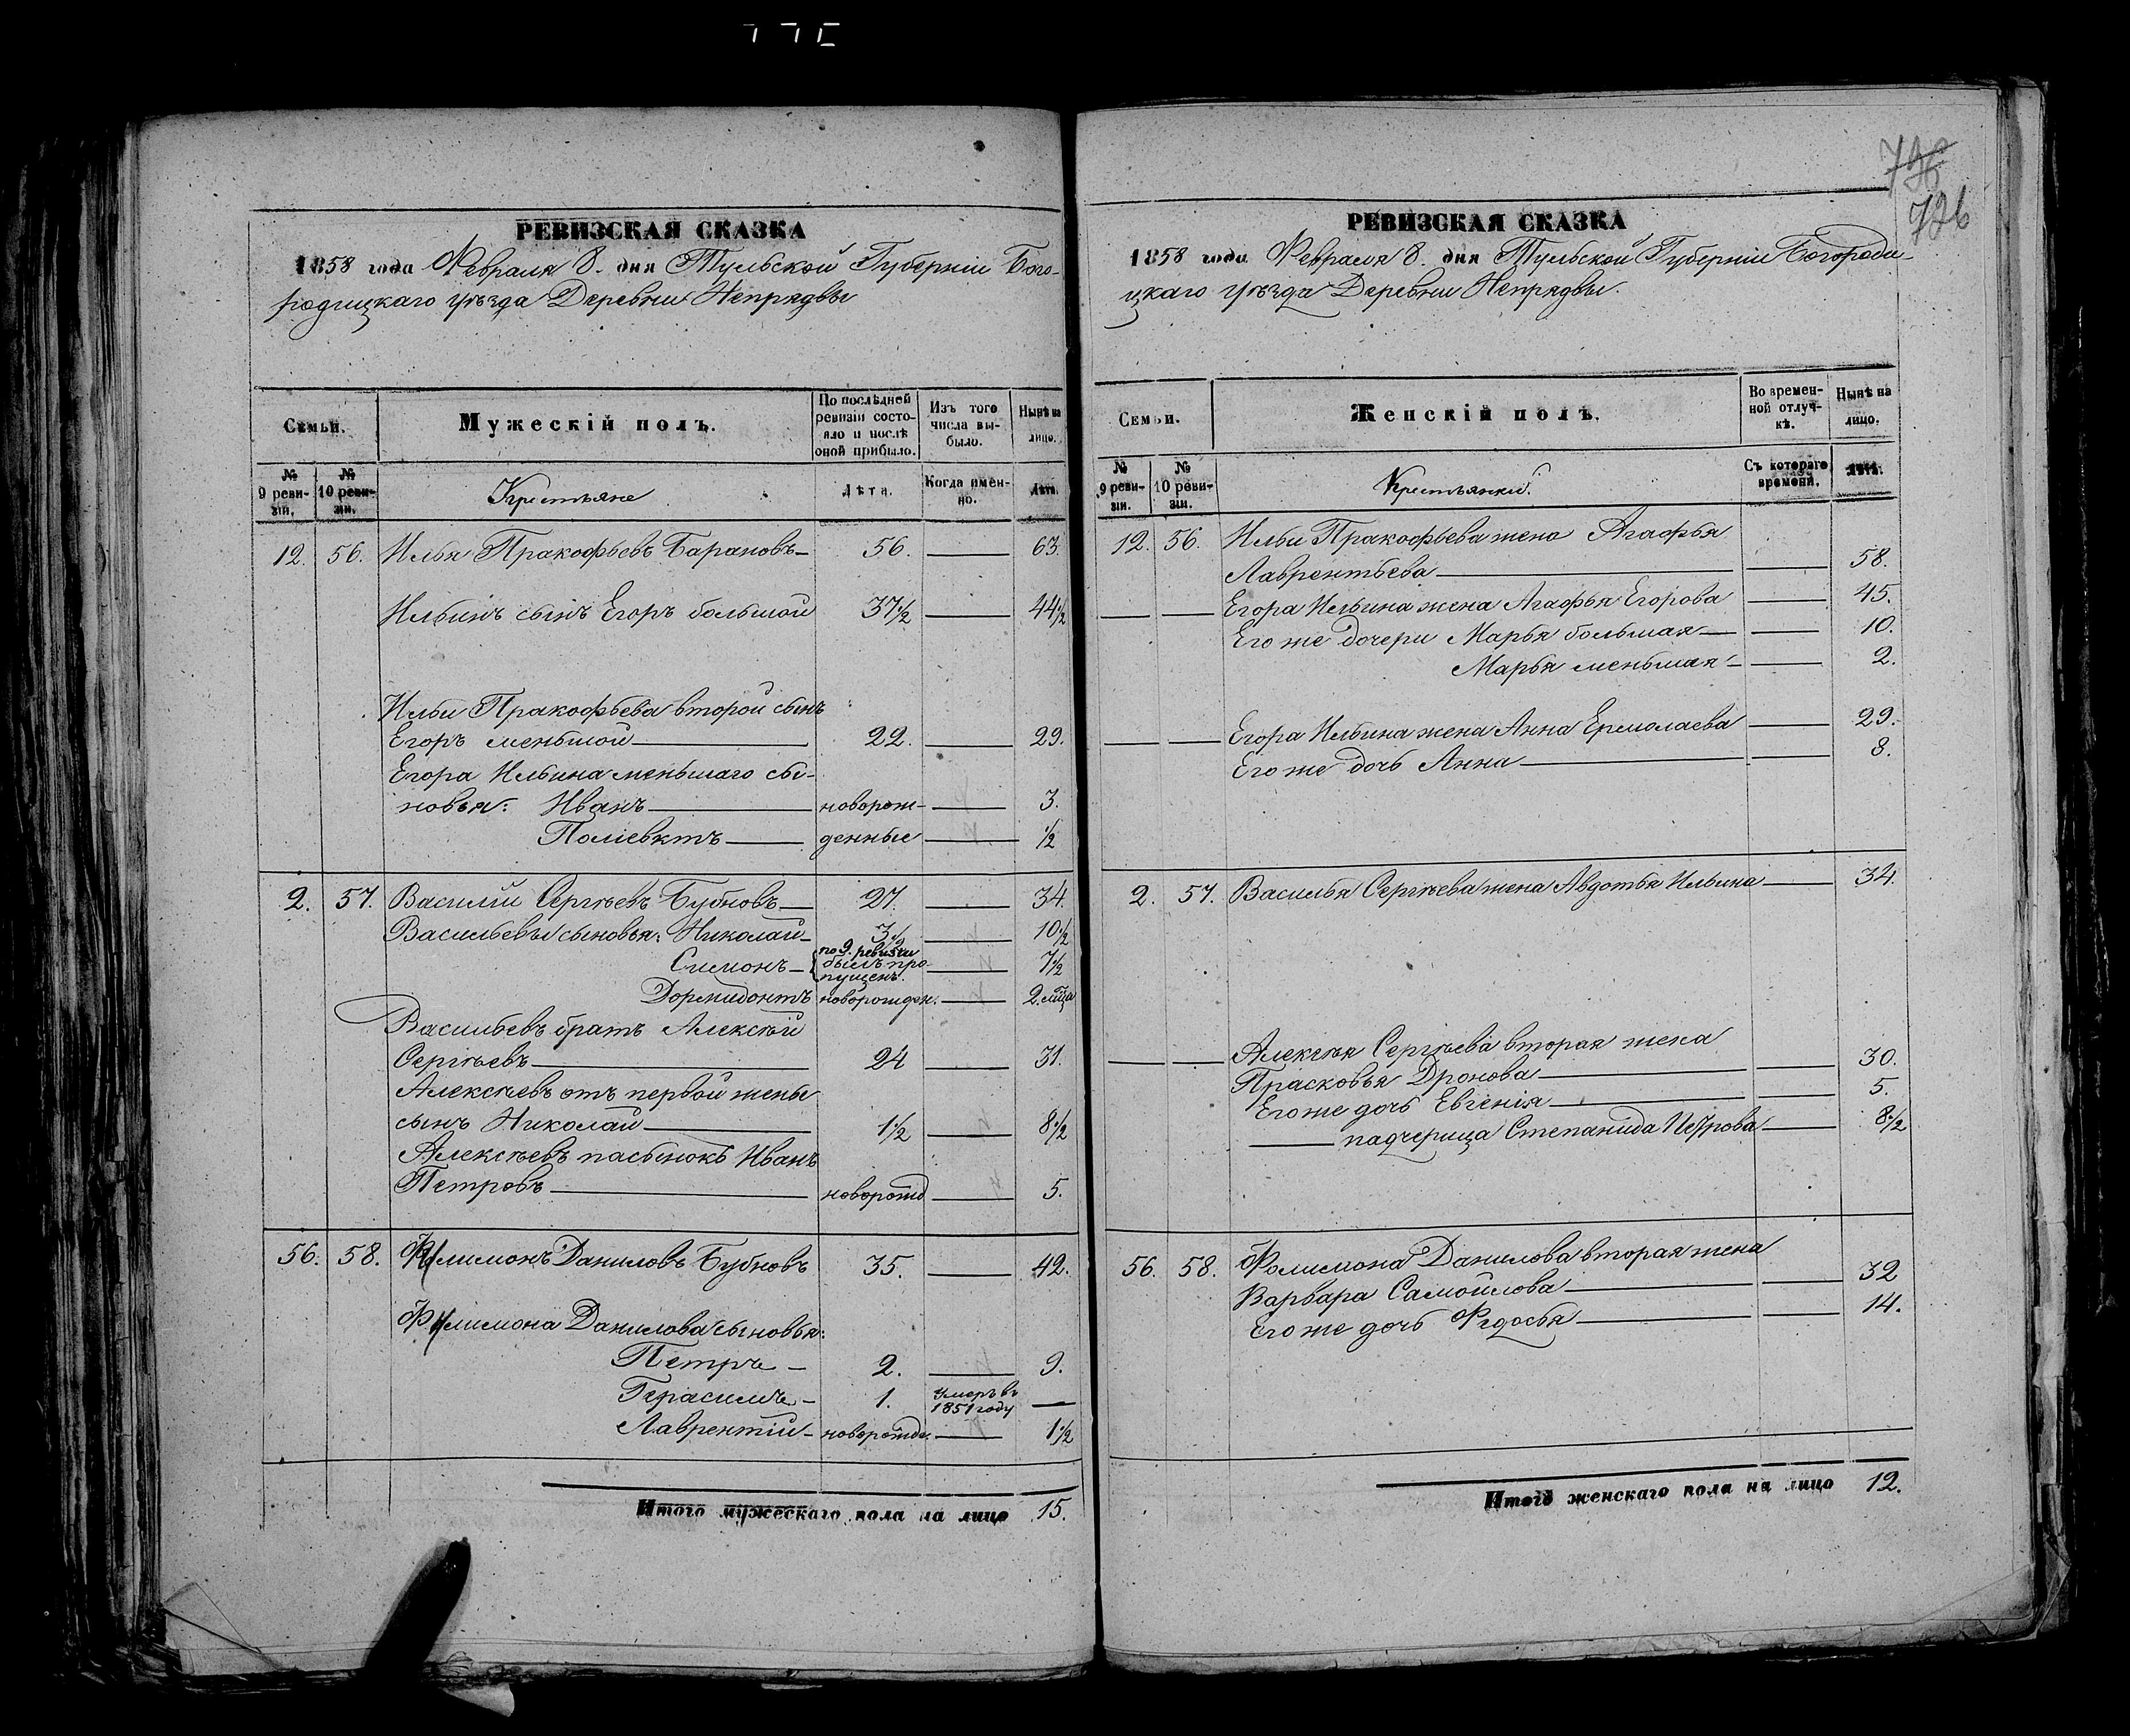 РЕВИЗСКАЯ СКАЗКА
1858 года Февраля 8. дня Тульской Губерніи Бого-
родицкаго уѣзда Деревни Непрядвы
Семьи.
Мужескій полъ.
По послѣдней ревизіи состо-
яло и послѣ оной прибыло.
Изъ того числа вы-
было.
Нынѣ на лицо.
№ 9 реви-
зіи.
№ 10 реви-
зіи.
Крестьяне
Лѣта.
Когда имен-
но.
Лѣта.
12. 56. Илья Пракофьевъ Барановъ— 56. — 63.
Ильинъ сынъ Егоръ большой 37½ — 44½
Ильи Пракофьева второй сынъ
Егоръ меньшой — 22. — 29.
Егора Ильина меньшаго сы-
новья: Иванъ — новорож- — 3.
Поліевктъ — денные — ½
2. 57. Василий Сергѣевъ Бубновъ — 27. — 34.
Васильевы сыновья: Николай — 3½ — 10½
Симонъ — по 9. ревизіи былъ про-
пущенъ. — 7½
Дормидонтъ новорожден. — 2. мца
Васильевъ братъ Алексѣй
Сергѣевъ — 24 — 31.
Алексѣевъ отъ первой жены
сынъ Николай — 1½ — 8½
Алексѣевъ пасынокъ Иванъ
Петровъ — новорожд — 5.
56. 58. Филимонъ Даниловъ Бубновъ 35. — 42.
Филимона Данилова сыновья:
Петръ — 2. — 9.
Герасимъ — 1. умеръ въ 1851 году —
Лаврентій — новорожде. — 1½
Итого мужескаго пола на лицо 15.
726
РЕВИЗСКАЯ СКАЗКА
1858 года Февраля 8. дня Тульской Губерніи Богороди-
цкаго уѣзда Деревни Непрядвы.
Семьи.
Женскій полъ.
Во времен-
ной отлуч-
кѣ.
Нынѣ на лицо.
№ 9 реви-
зіи.
№ 10 реви-
зіи.
Крестьянки.
Съ котораго времени.
Лѣта.
12. 56. Ильи Пракофьева жена Агафья
Лаврентьева — — 58.
— — Егора Ильина жена Агафья Егорова — 45.
Его же дочери Марья большая — — 10.
Марья меньшая — — 2.
— — Егора Ильина жена Анна Ермолаева — 29.
Его же дочь Анна — — 8.
2. 57. Василья Сергѣева жена Авдотья Ильина — 34.
— — Алексѣя Сергѣева вторая жена
Прасковья Дронова — — 30.
Его же дочь Евгенія — — 5.
— падчерица Степанида Петрова — 8½
56. 58. Фолимона Данилова вторая жена
Варвара Самойлова — — 32
Его же дочь Федосья — — 14.
Итого женскаго пола на лицо 12.